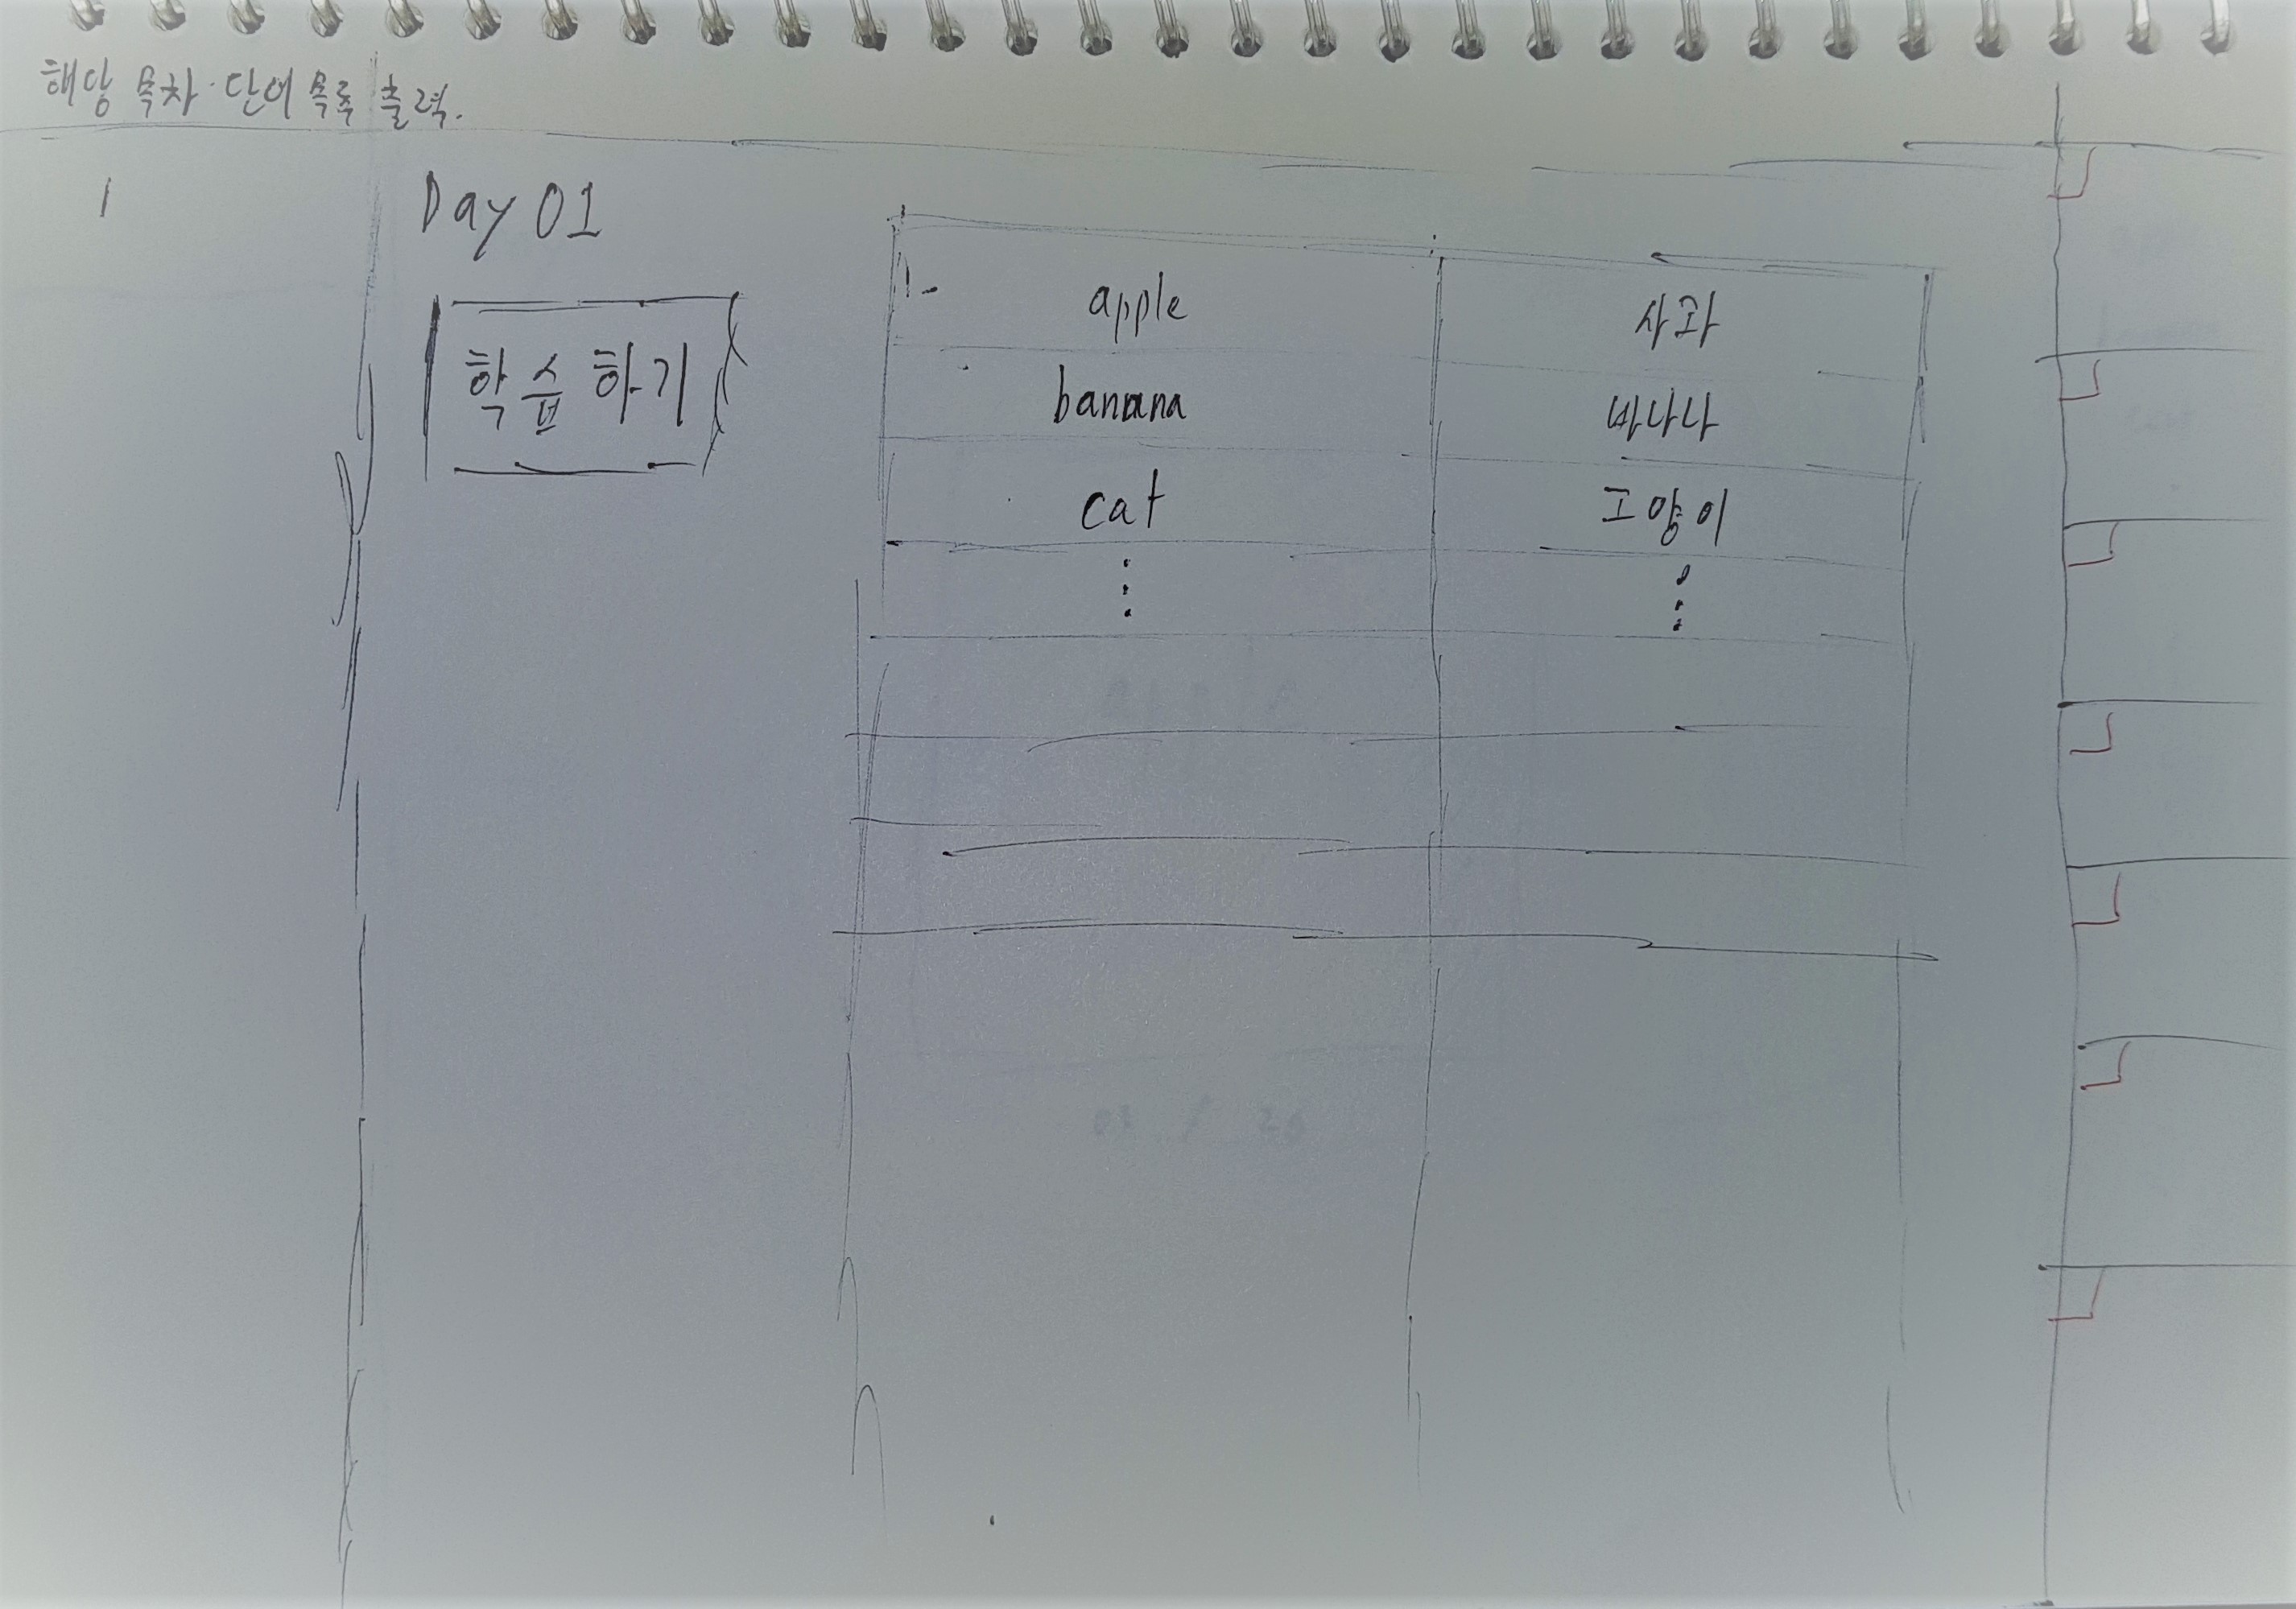 해당 목차·단어 목록 출력.
1
Day 01
학습하기
1. apple 사과
banana 바나나
cat 고양이